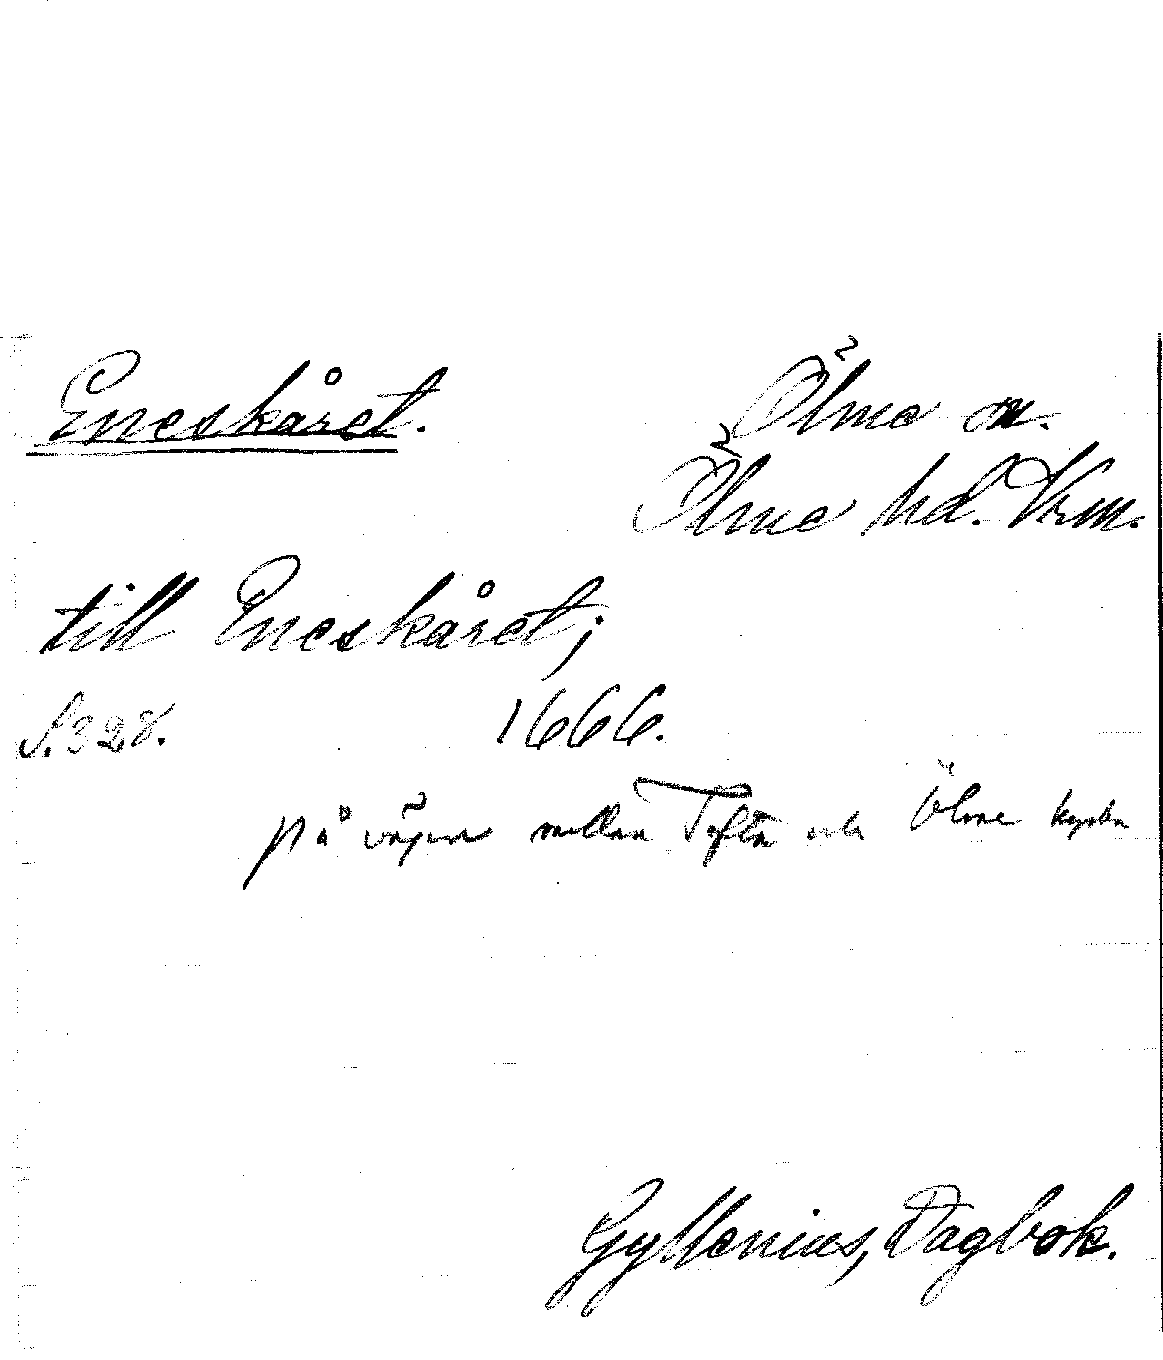 Eneskåret.
Ölme sn.
Ölme hd. Vrm.
till Eneskåret;
S. 328. 1666.
på vägen mellan Tofta och Ölme kyrka
Gyllenius, Dagbok.